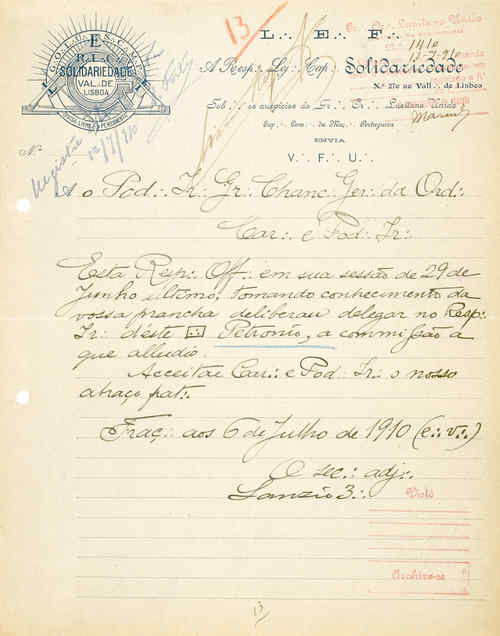 13
L∴ E∴ F∴
A Resp∴ Loj∴ Cap∴ Solidariedade
N.º 270 ao Vall∴ de Lisboa
Sob os auspicios do Gr∴ Or∴ Lusitano Unido
Sup∴ Cons∴ da Maç∴ Portugueza
ENVIA
V∴ F∴ U∴
SOLIDARIEDADE
VAL∴ DE
LISBOA
Gr∴ Or∴ Lusitano Unido
1410
13-7-910
N.º
Registada
12/7/910
Ao Pod∴ Ir∴ Gr∴ Chanc∴ Ger∴ da Ord∴
Car∴ e Pod∴ Ir∴
Esta Resp∴ Off∴ em sua sessão de 29 de
Junho ultimo, tomando conhecimento da
vossa prancha deliberau delegar no Resp∴
Ir∴ d'este Petronio, a commissão a
que alludio.
Acceitae Car∴ e Pod∴ Ir∴ o nosso
abraço frat∴
Traç∴ aos 6 de Julho de 1910 (e∴ v∴)
O sec∴ adj∴
3∴
Visto
Archive-se
13